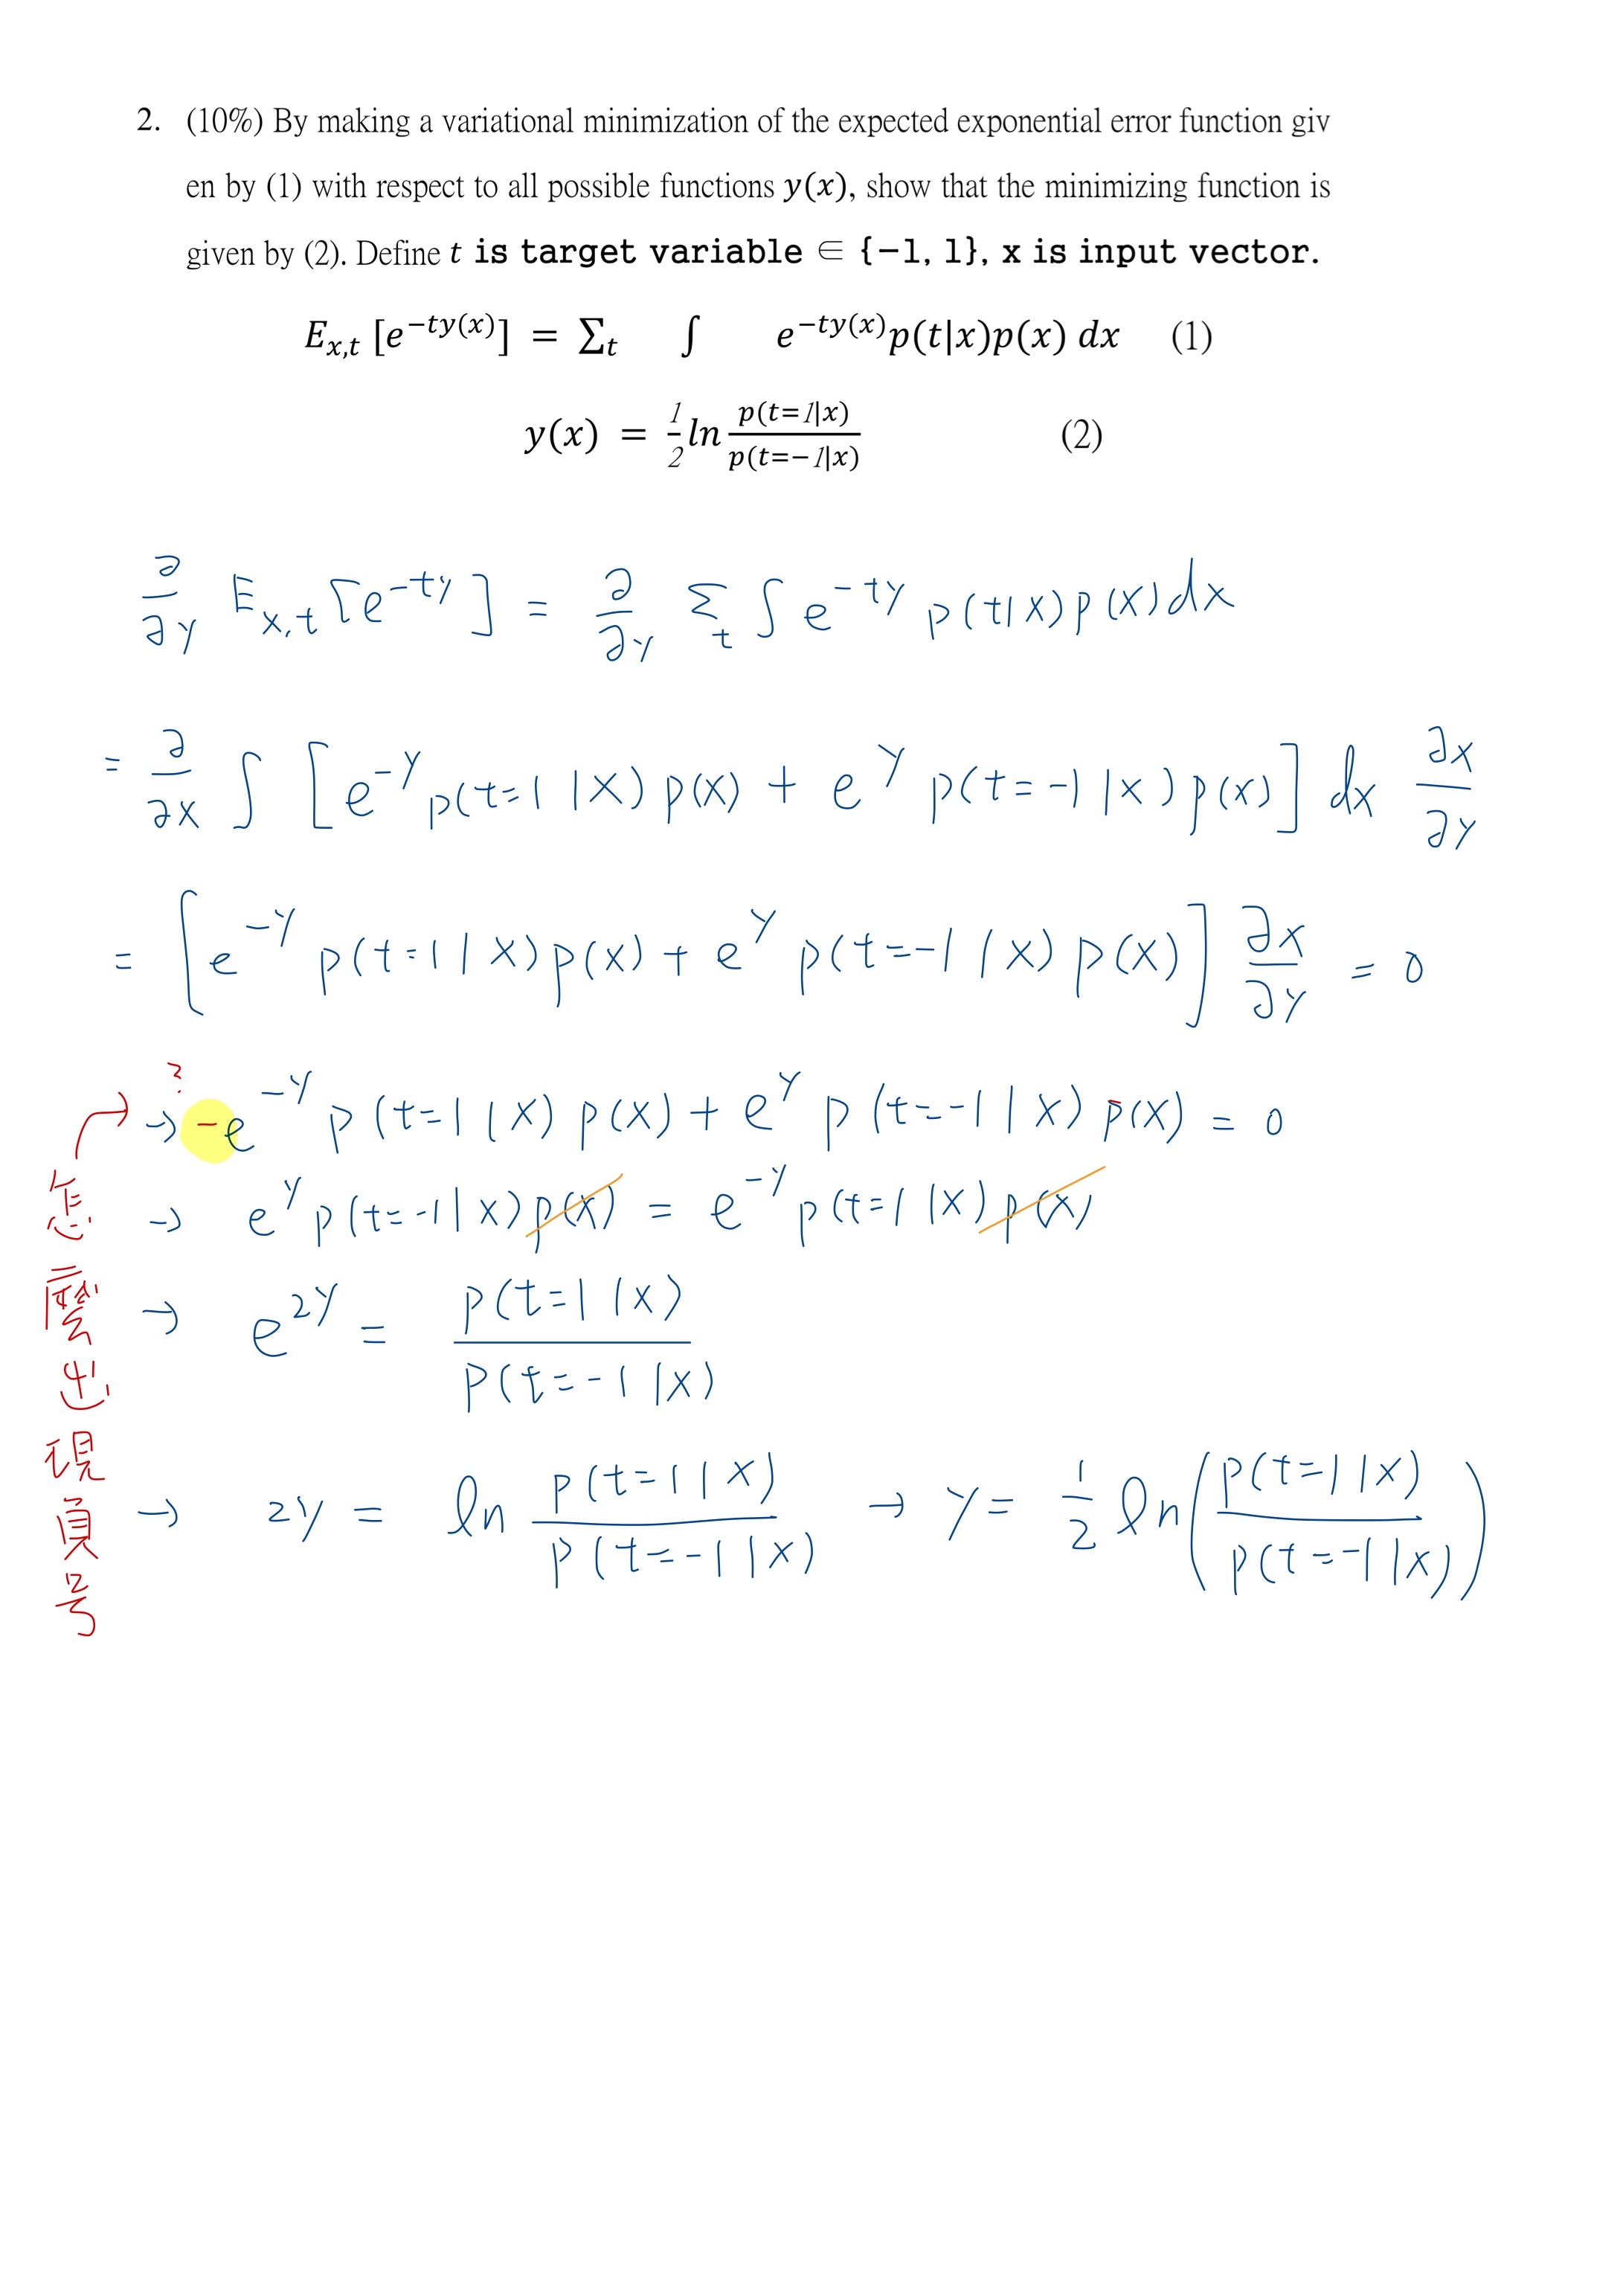 2. (10%) By making a variational minimization of the expected exponential error function giv
en by (1) with respect to all possible functions y(x), show that the minimizing function is
given by (2). Define t is target variable ∈ {−1, 1}, x is input vector.
E_{x,t} [e^{−ty(x)}] = ∑_t ∫ e^{−ty(x)}p(t|x)p(x) dx (1)
y(x) = \frac{1}{2} ln \frac{p(t=1|x)}{p(t=−1|x)} (2)
\frac{∂}{∂y} E_{x,t} [e^{-ty}] = \frac{∂}{∂y} Σ_t ∫ e^{-ty} p(t|x) p(x) dx
= \frac{∂}{∂x} ∫ [e^{-y} p(t=1|x) p(x) + e^{y} p(t=-1|x) p(x)] dx \frac{∂x}{∂y}
= [e^{-y} p(t=1|x) p(x) + e^{y} p(t=-1|x) p(x)] \frac{∂x}{∂y} = 0
?
→ -e^{-y} p(t=1|x) p(x) + e^{y} p(t=-1|x) p(x) = 0
→ e^{y} p(t=-1|x) p(x) = e^{-y} p(t=1|x) p(x)
→ e^{2y} = \frac{p(t=1|x)}{p(t=-1|x)}
→ 2y = ln \frac{p(t=1|x)}{p(t=-1|x)} → y = \frac{1}{2} ln(\frac{p(t=1|x)}{p(t=-1|x)})
怎麼出現負号